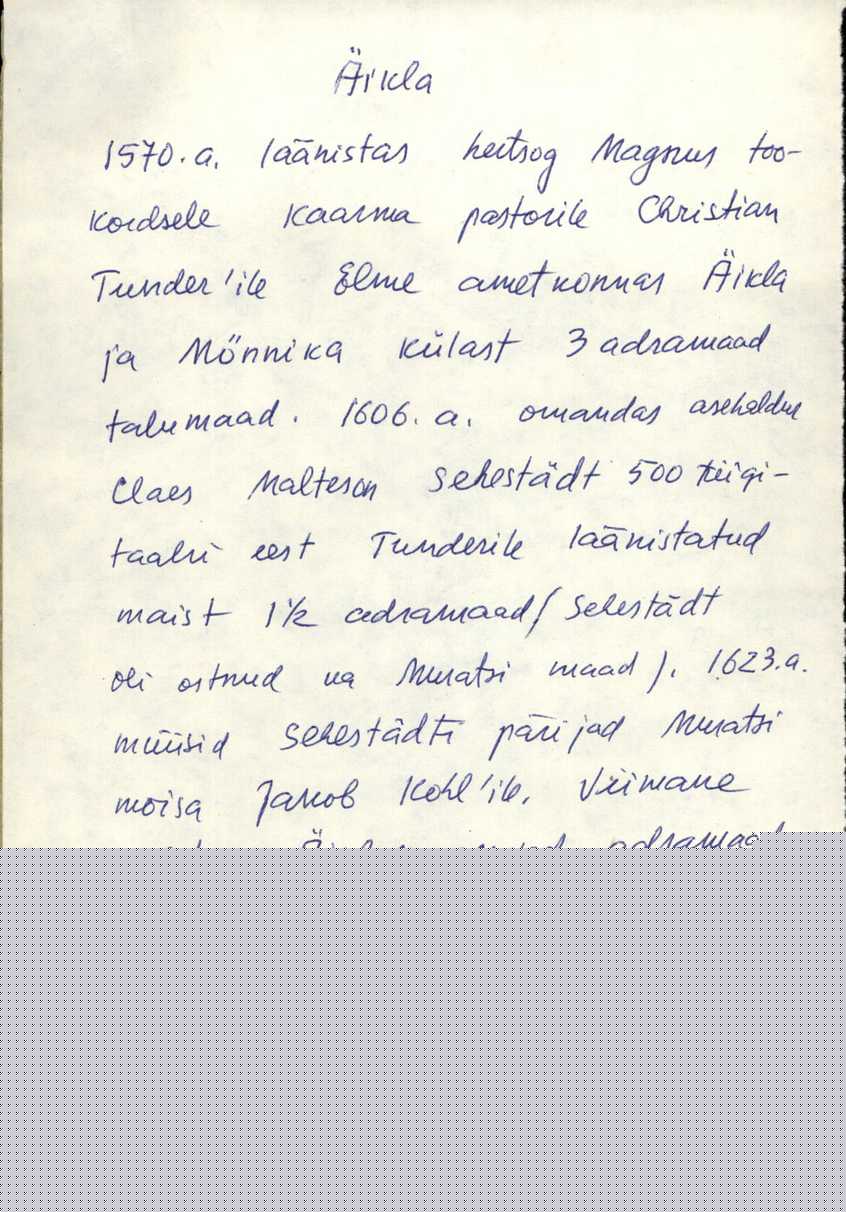 Äikla
1570.a. läänistas hertsog Magnus too-
kordsele Kaarma pastorile Christian
Tunder'ile Elme ametkonnas Äikla
ja Mõnnika külast 3 adramaad
talumaad. 1606.a. omandas asehaldur
Claes Malteson Sehestädt 500 riigi-
taalri eest Tunderile läänistatud
maist 1½ adramaad (Sehestädt
oli ostnud ka Muratsi maad). 1623.a.
müüsid Sehestädti pärijad Muratsi
moisa Jakob Kohl'ile. Viimane
adramaad